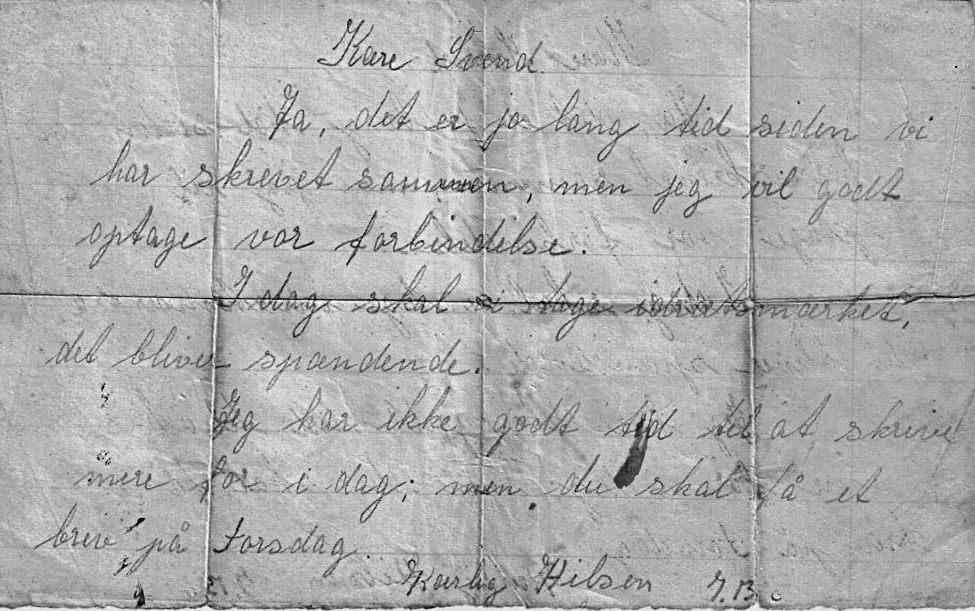 Kære Svend.
Ja, det er jo lang tid siden vi
har skrevet sammen, men jeg vil godt
optage vor forbindelse.
I dag skal vi tage idrætsmærket,
det bliver spændende.
Jeg har ikke godt tid til at skrive
mere for i dag; men du skal få et
brev på Torsdag.
Kærlig Hilsen